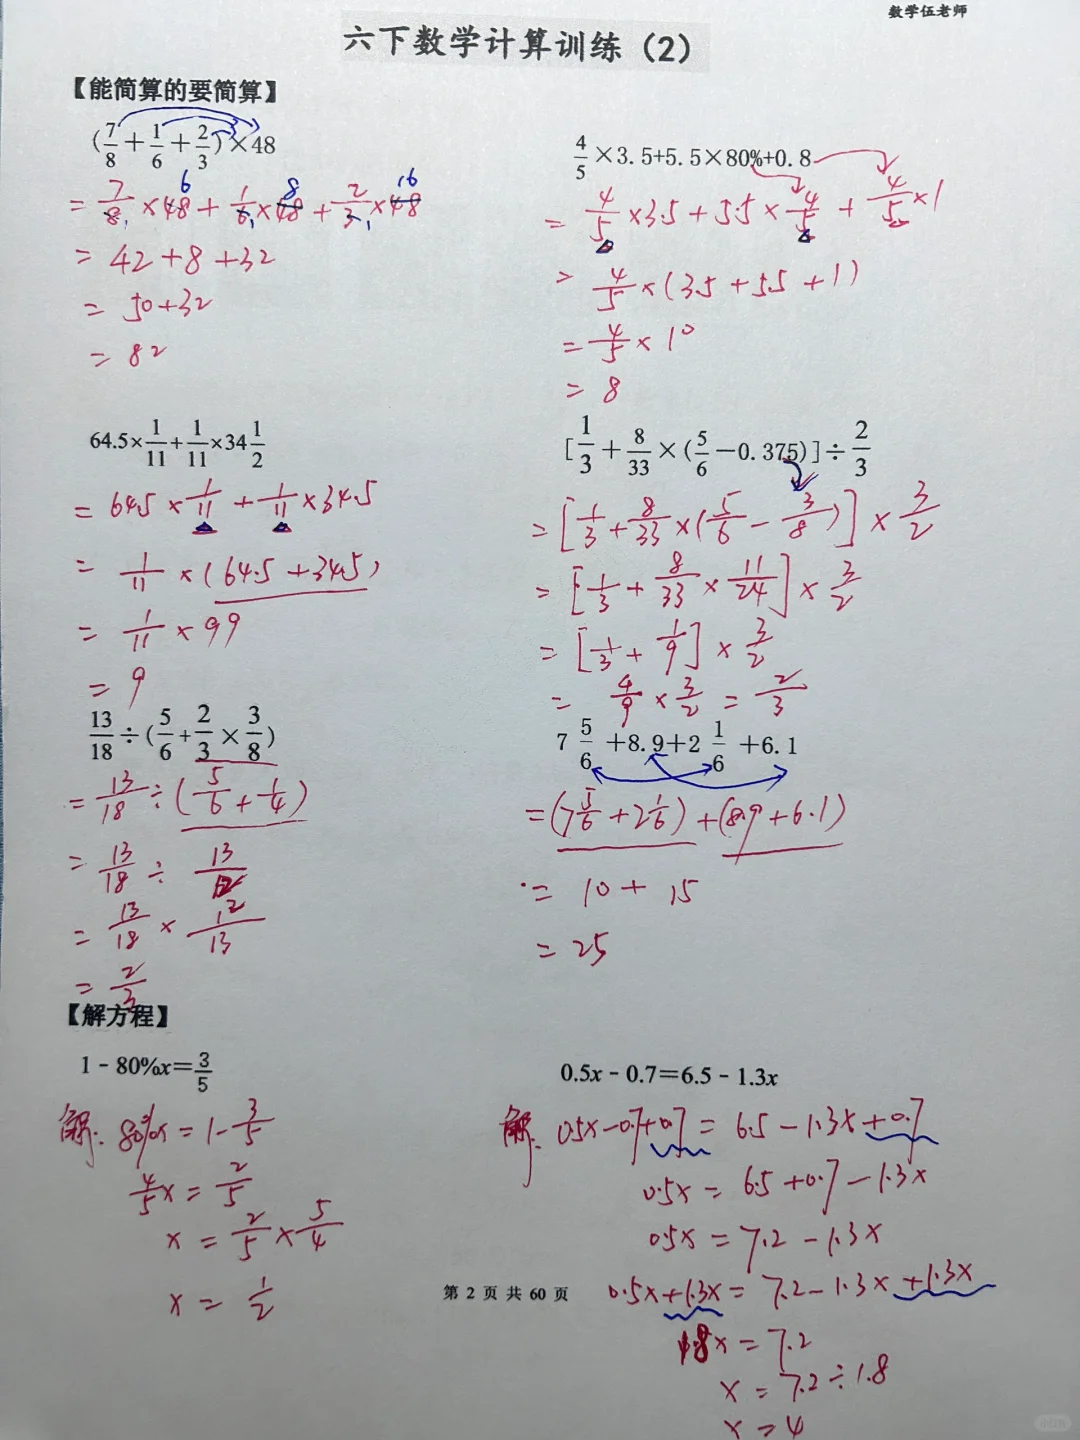 数学伍老师
六下数学计算训练（2）
【能简算的要简算】
(7/8+1/6+2/3)×48
=7/8×48+1/6×48+2/3×48
=42+8+32
=50+32
=82
4/5×3.5+5.5×80%+0.8
=4/5×3.5+5.5×4/5+4/5×1
=4/5×(3.5+5.5+1)
=4/5×10
=8
64.5×1/11+1/11×34 1/2
=64.5×1/11+1/11×34.5
=1/11×(64.5+34.5)
=1/11×99
=9
[1/3+8/33×(5/6-0.375)]÷2/3
=[1/3+8/33×(5/6-3/8)]×3/2
=[1/3+8/33×11/24]×3/2
=[1/3+1/9]×3/2
=4/9×3/2=2/3
13/18÷(5/6+2/3×3/8)
=13/18÷(5/6+1/4)
=13/18÷13/12
=13/18×12/13
=2/3
7 5/6+8.9+2 1/6+6.1
=(7 5/6+2 1/6)+(8.9+6.1)
=10+15
=25
【解方程】
1-80%x=3/5
解:80%x=1-3/5
4/5x=2/5
x=2/5×5/4
x=1/2
0.5x-0.7=6.5-1.3x
解:0.5x-0.7+0.7=6.5-1.3x+0.7
0.5x=6.5+0.7-1.3x
0.5x=7.2-1.3x
0.5x+1.3x=7.2-1.3x+1.3x
1.8x=7.2
x=7.2÷1.8
x=4
第 2 页 共 60 页